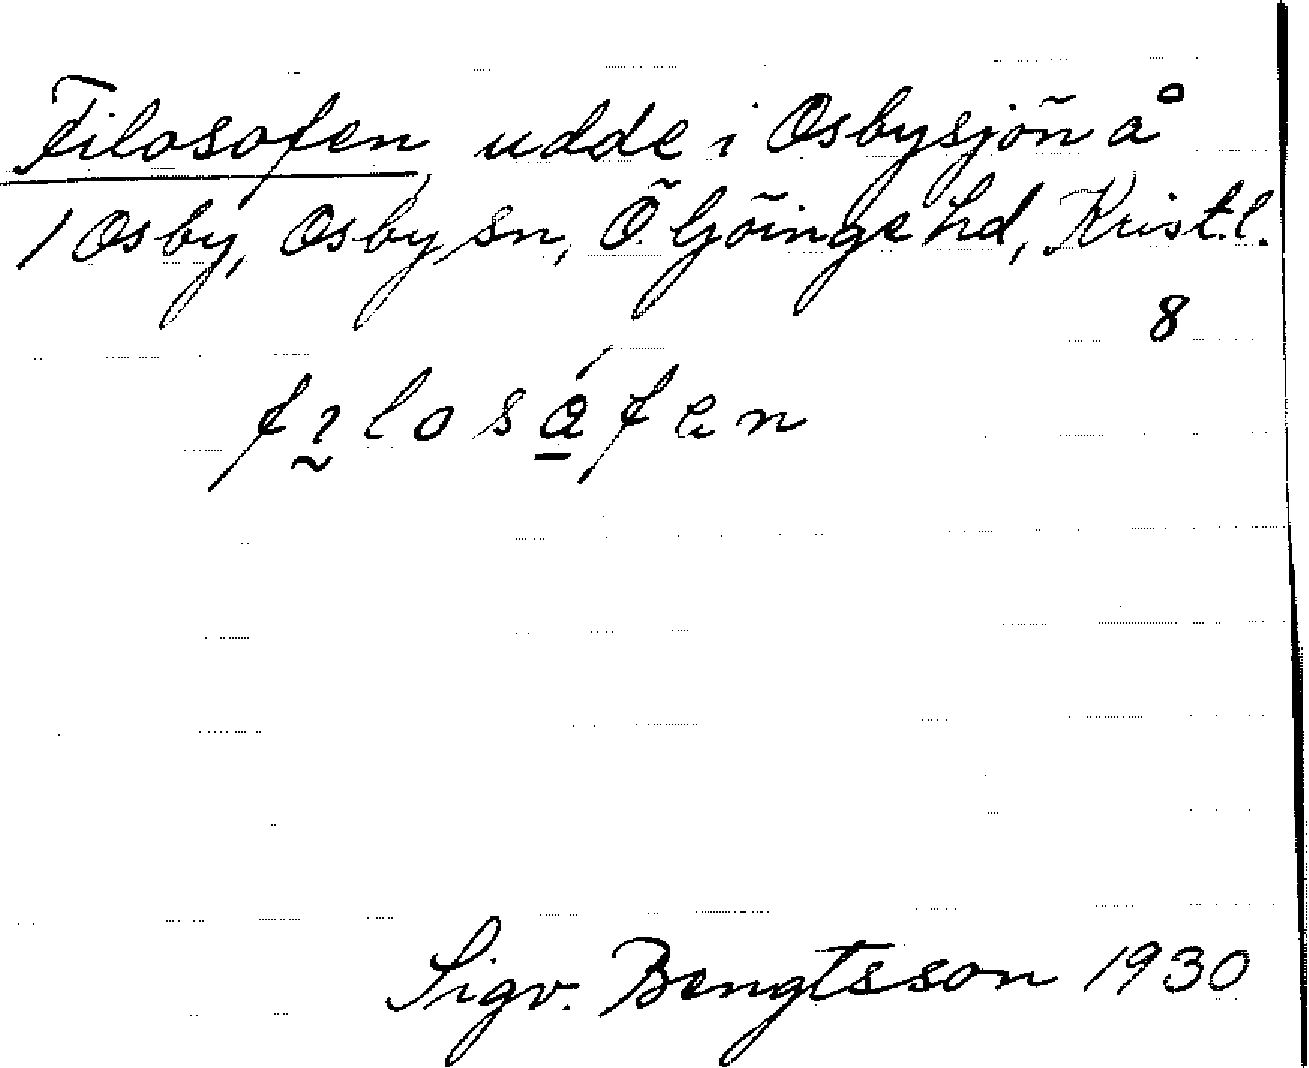 Filosofen udde i Osbysjön å
1 Osby, Osby sn, Ö. Göinge hd, Krist.l.
8
Sigv. Bengtsson 1930